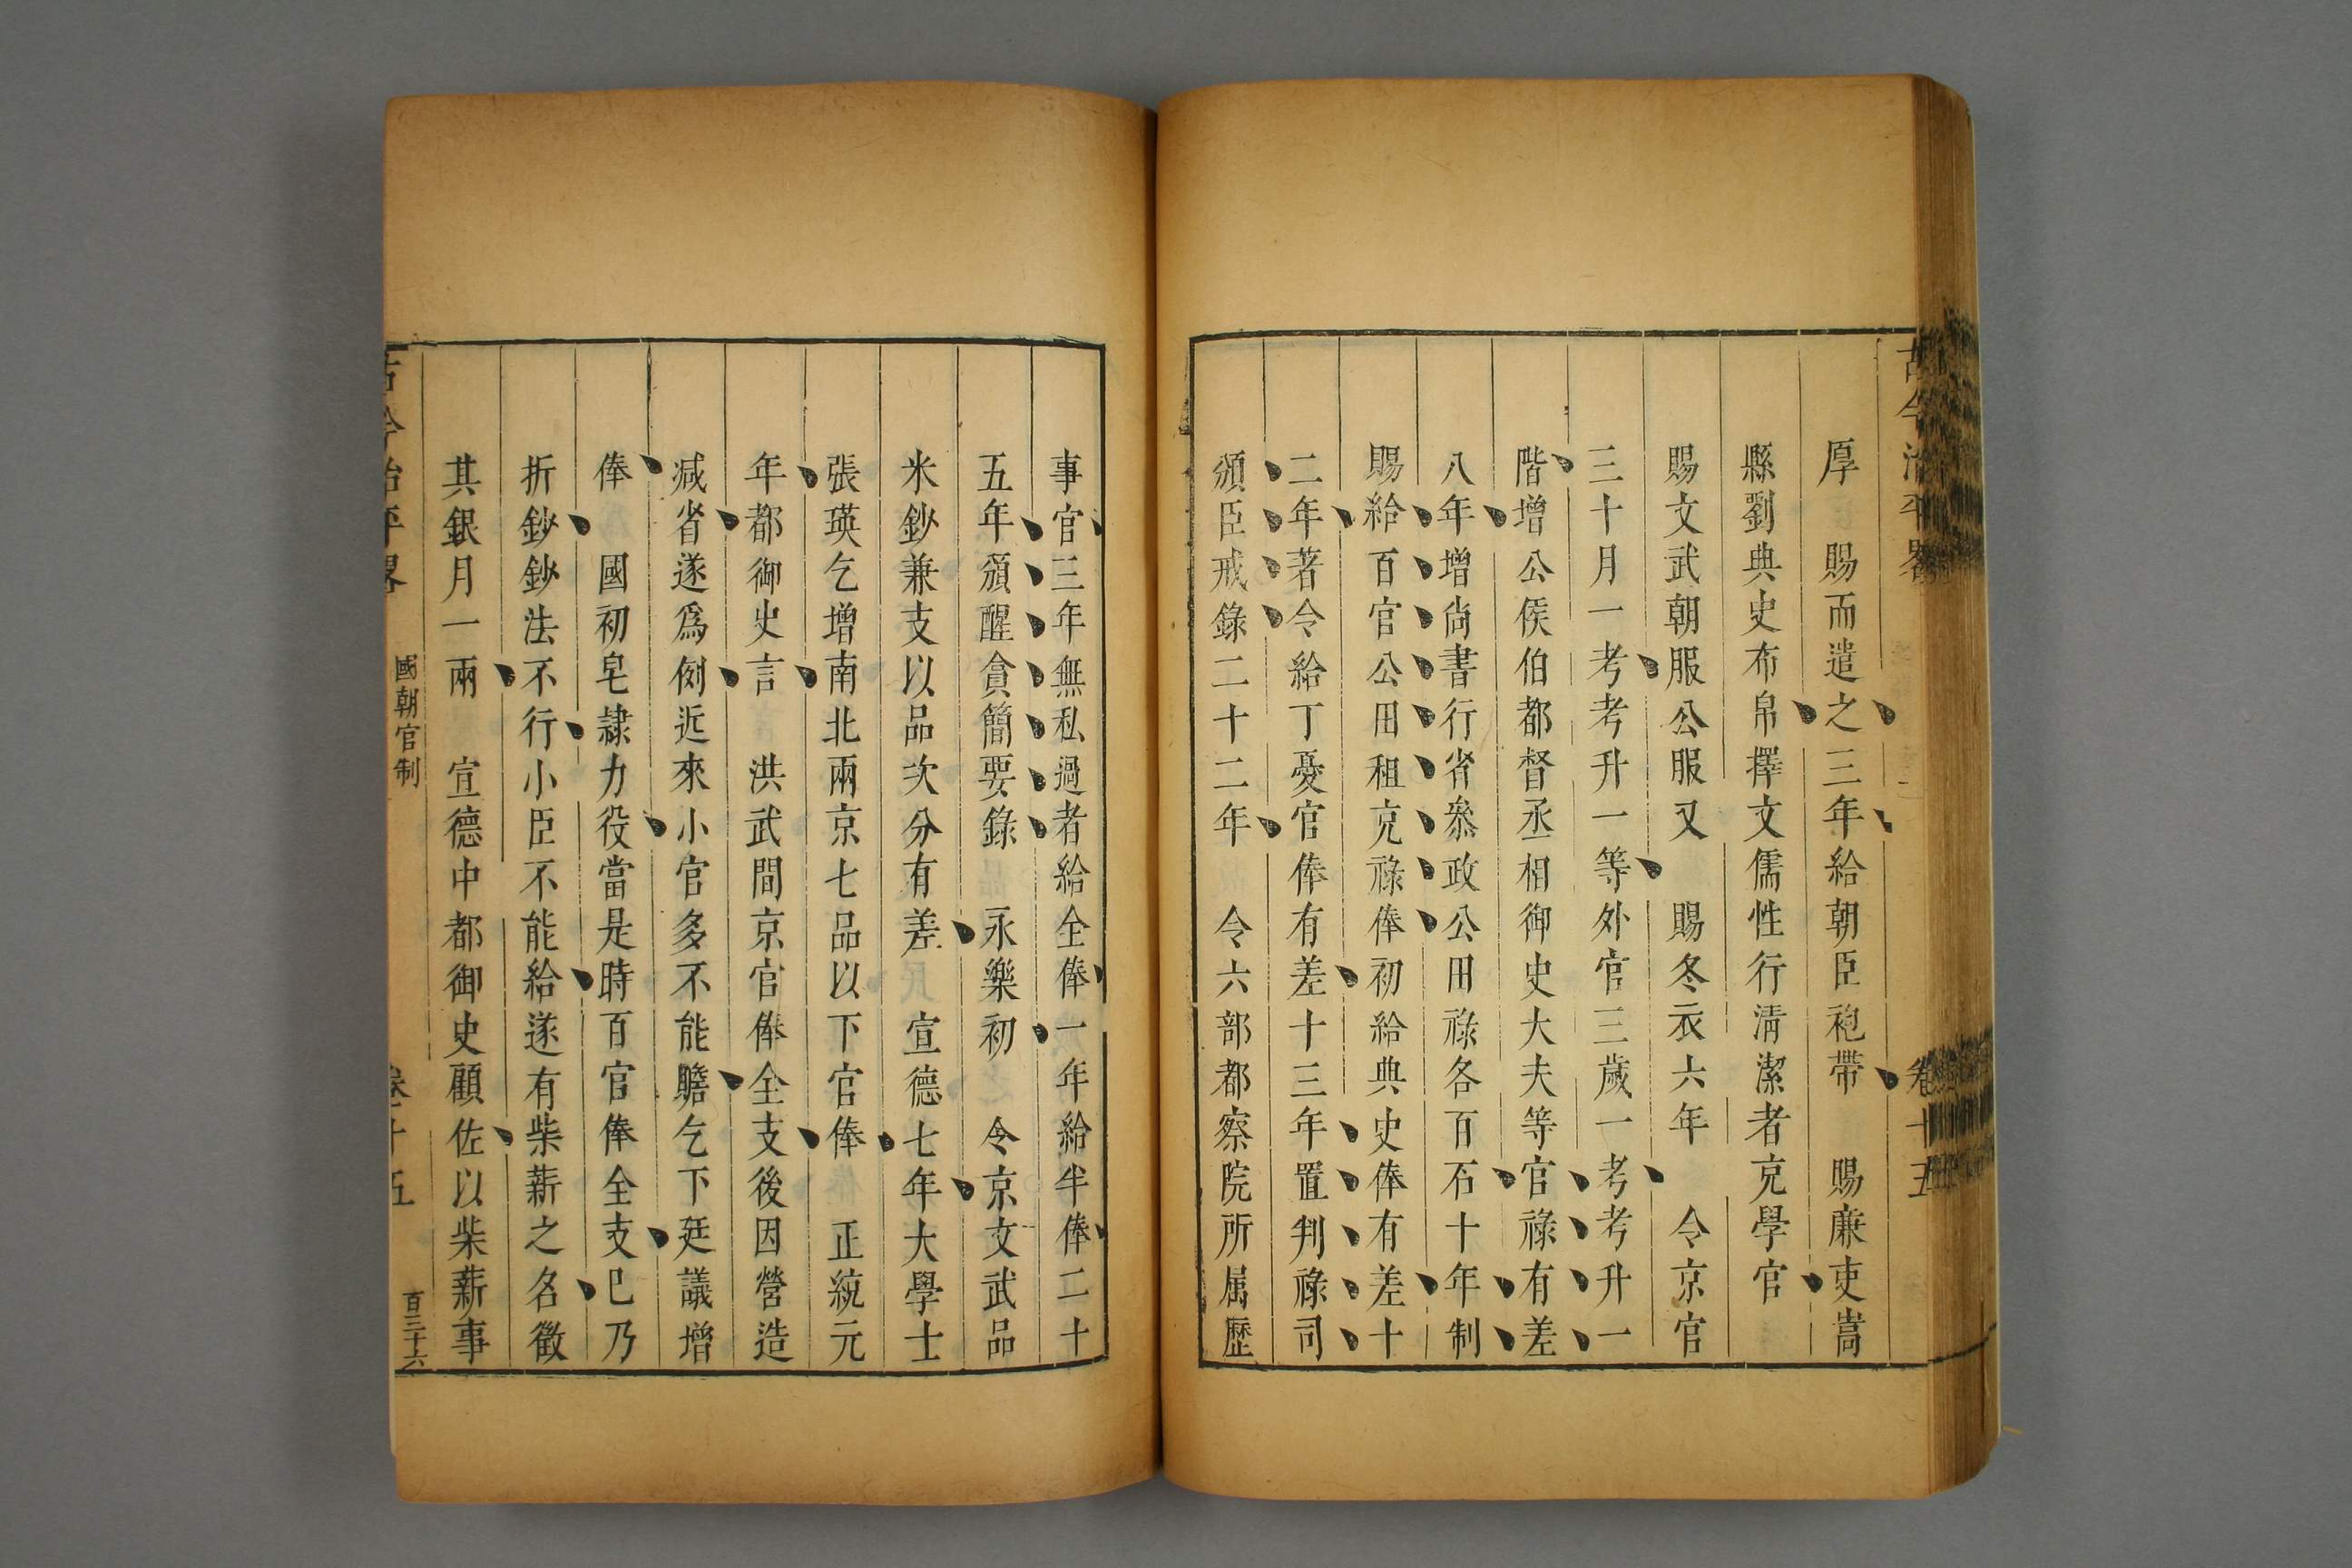 古今治平畧
卷十五
厚　賜而遣之三年給朝臣袍帶　賜廉吏嵩
縣劉典史布帛擇文儒性行清潔者充學官
賜文武朝服公服又　賜冬衣六年　令京官
三十月一考考升一等外官三歲一考考升一
階增公侯伯都督丞相御史大夫等官祿有差
八年增尚書行省叅政公田祿各百石十年制
賜給百官公田租充祿俸初給典史俸有差十
二年著令給丁憂官俸有差十三年置判祿司
頒臣戒錄二十二年　令六部都察院所属歷
事官三年無私過者給全俸一年給半俸二十
五年頒醒貪簡要錄　永樂初　令京文武品
米鈔兼支以品次分有差　宣德七年大學士
張瑛乞增南北兩京七品以下官俸　正統元
年都御史言　洪武間京官俸全支後因營造
减省遂爲例近來小官多不能贍乞下廷議增
俸　國初皂隷力役當是時百官俸全支已乃
折鈔鈔法不行小臣不能給遂有柴薪之名徵
其銀月一兩　宣德中都御史顧佐以柴薪事
古今治平畧
國朝官制
卷十五
百三十六